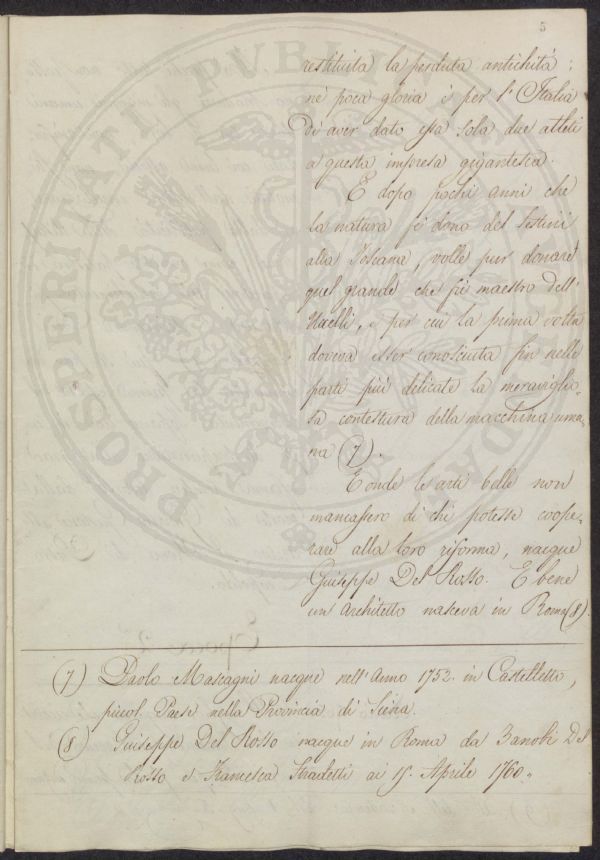 5
restituita la perduta antichità;
nè poca gloria è per l'Italia
di aver dato essa sola due atleti
a questa impresa gigantesca.
E dopo pochi anni che
la natura fè dono del Sestini
alla Toscana, volle pur donare
quel grande che fù maestro dell'
Uccelli, e per cui la prima volta
doveva esser conosciuta fin nelle
parti più delicate la meraviglio-
sa contestura della macchina uma-
na (7).
E onde le arti belle non
mancassero di chi potesse coope-
rare alla loro riforma, nacque
Giuseppe Del Rosso. E bene
un Architetto nasceva in Roma (8).
(7) Paolo Mascagni nacque nell'Anno 1752. in Castelletto,
piccol Paese nella Provincia di Siena.
(8) Giuseppe Del Rosso nacque in Roma da Zanobi Del
Rosso e Francesca ai 15. Aprile 1760.
PROSPERITATI PUBLI